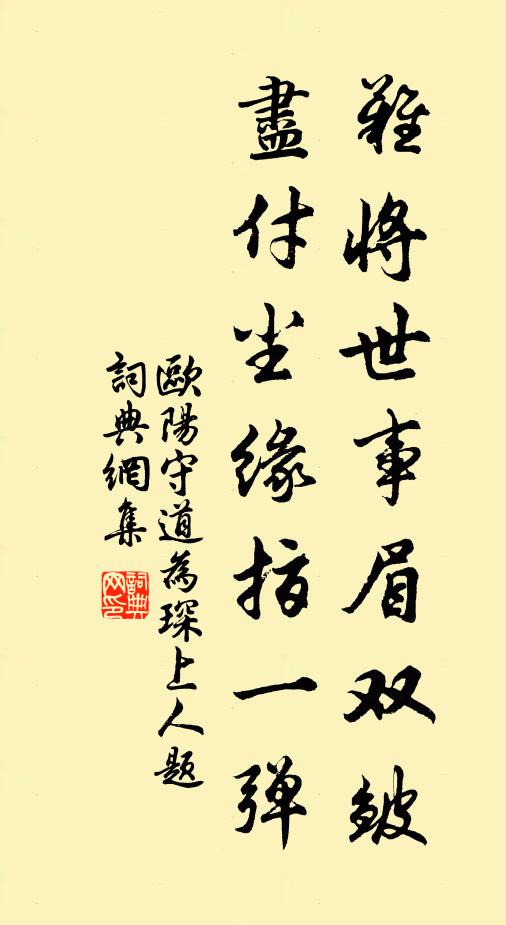 難將世事眉双皺
盡付尘緣指一彈
歐陽守道為琛上人題
詞典網集
詞典网印